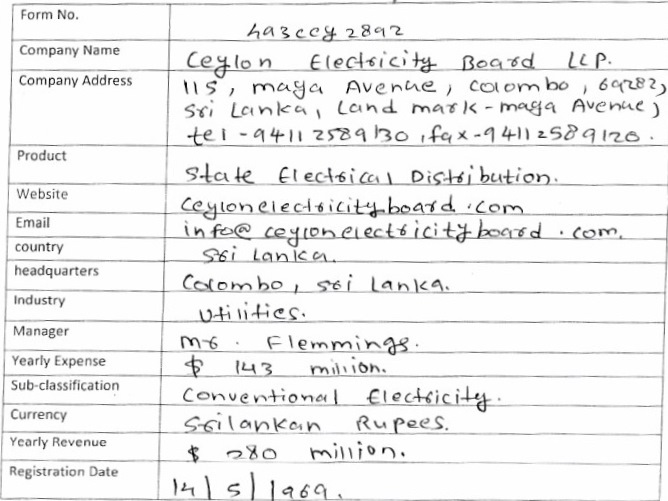 Form No. ha3ccy2892
Company Name Ceylon Electricity Board LLP.
Company Address 115, maya Avenue, colombo, 69282,
Sri Lanka, Land mark-maya Avenue,
tel-94112589130, fax-94112589120.
Product State Electrical Distribution.
Website Ceylonelectricityboard.com
Email info@ceylonelectricityboard.com.
country Sri Lanka.
headquarters Colombo, sri Lanka.
Industry Utilities.
Manager Mr. Flemmings.
Yearly Expense $ 143 million.
Sub-classification Conventional Electricity.
Currency Srilankan Rupees.
Yearly Revenue $ 280 million.
Registration Date 14/5/1969.